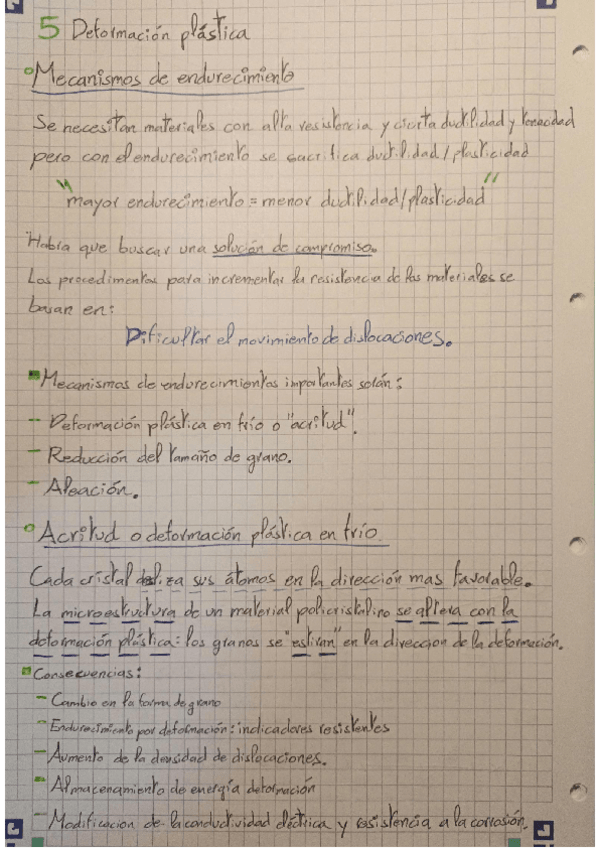 5 Deformación plástica
Mecanismos de endurecimiento
Se necesitan materiales con alta resistencia y cierta ductilidad y tenacidad
pero con el endurecimiento se sacrifica ductilidad/plasticidad
"mayor endurecimiento = menor ductilidad/plasticidad"
Habría que buscar una solución de compromiso.
Los procedimientos para incrementar la resistencia de los materiales se
basan en:
Dificultar el movimiento de dislocaciones.
Mecanismos de endurecimientos importantes serán:
- Deformación plástica en frío o "acritud".
- Reducción del tamaño de grano.
- Aleación.
Acritud o deformación plástica en frío
Cada cristal desliza sus átomos en la dirección mas favorable.
La microestructura de un material policristalino se altera con la
deformación plástica: los granos se "estiran" en la direccion de la deformación.
Consecuencias:
- Cambio en la forma de grano
- Endurecimiento por deformación: indicadores resistentes
- Aumento de la densidad de dislocaciones.
- Almacenamiento de energía deformación
- Modificacion de la conductividad eléctrica y resistencia a la corrosión.